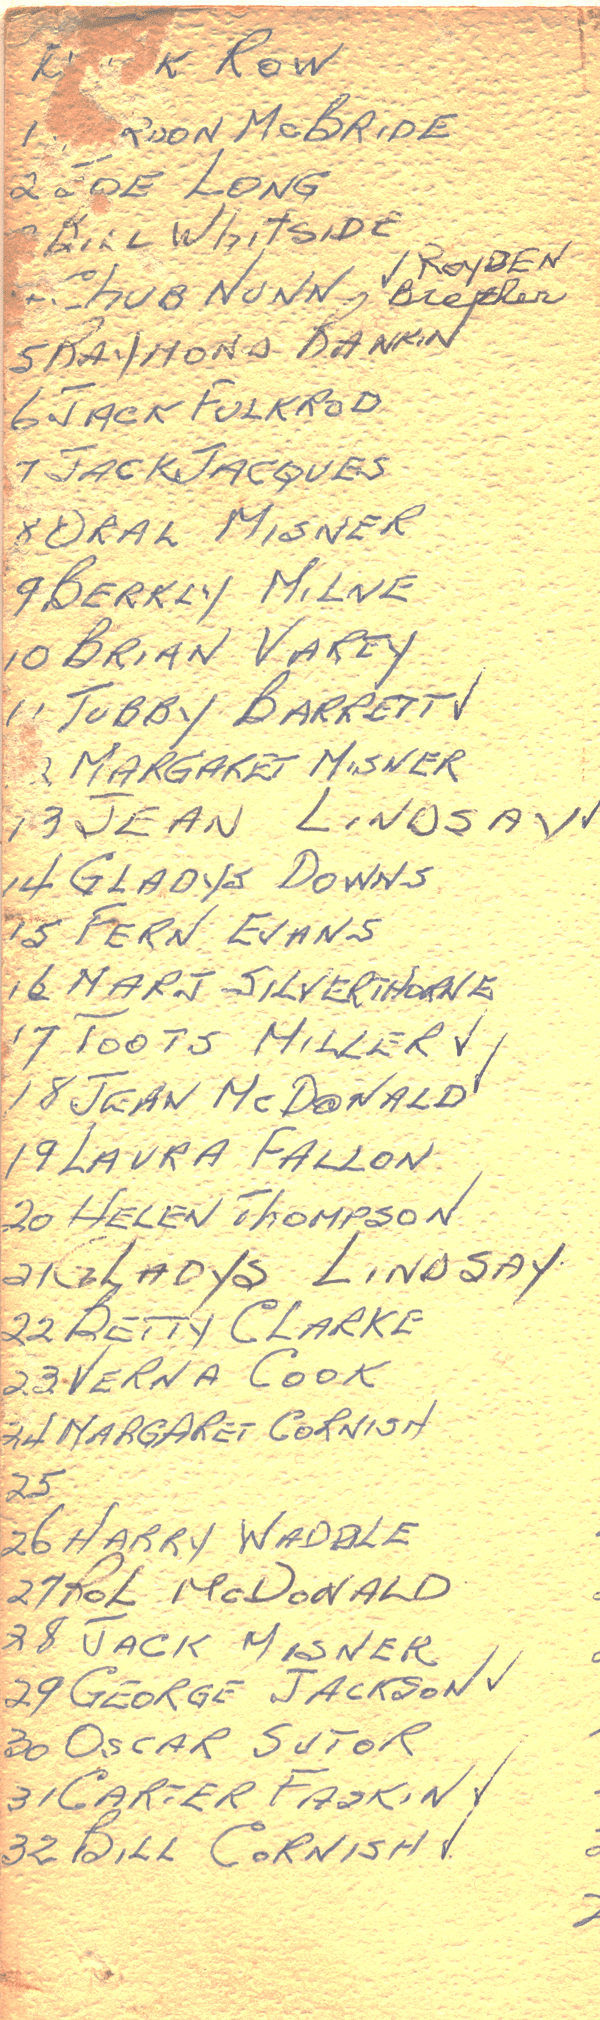 Row
1 RDON McBRIDE
2 JOE LONG
BILL WhitSIDE
Chub NUNN, ✓ ROYDEN
Brother
5 RAYMOND RANKIN
6 JACK FULKROD
7 JACK JACQUES
8 ORAL MISNER
9 BERKLY MILNE
10 BRIAN VAREY
11 TUBBY BARRETT ✓
2 MARGARET MISNER
13 JEAN LINDSAY ✓
14 GLADYS DOWNS
15 FERN EVANS
16 MARJ SILVERTHORNE
17 TOOTS MILLER ✓
18 JEAN McDONALD ✓
19 LAURA FALLON
20 HELEN ThOMPSON
21 GLADYS LINDSAY
22 BETTY CLARKE
23 VERNA COOK
24 MARGARET CORNISH
25
26 HARRY WADDLE
27 ROL McDONALD
28 JACK MISNER
29 GEORGE JACKSON ✓
30 OSCAR SUTOR
31 CARTER FASKIN ✓
32 BILL CORNISH ✓